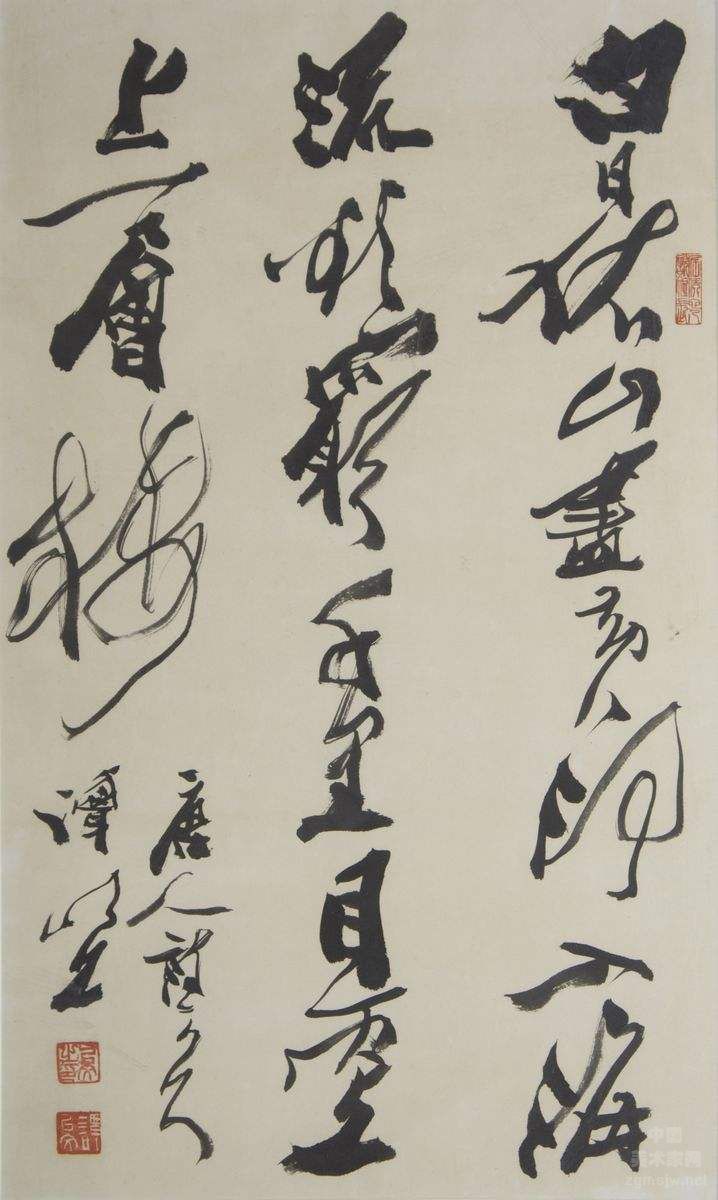 白日依山盡黄河入海
流欲窮千里目更
上一層樓
唐人詩
譚
中国
美术家网
zgmsjw.net